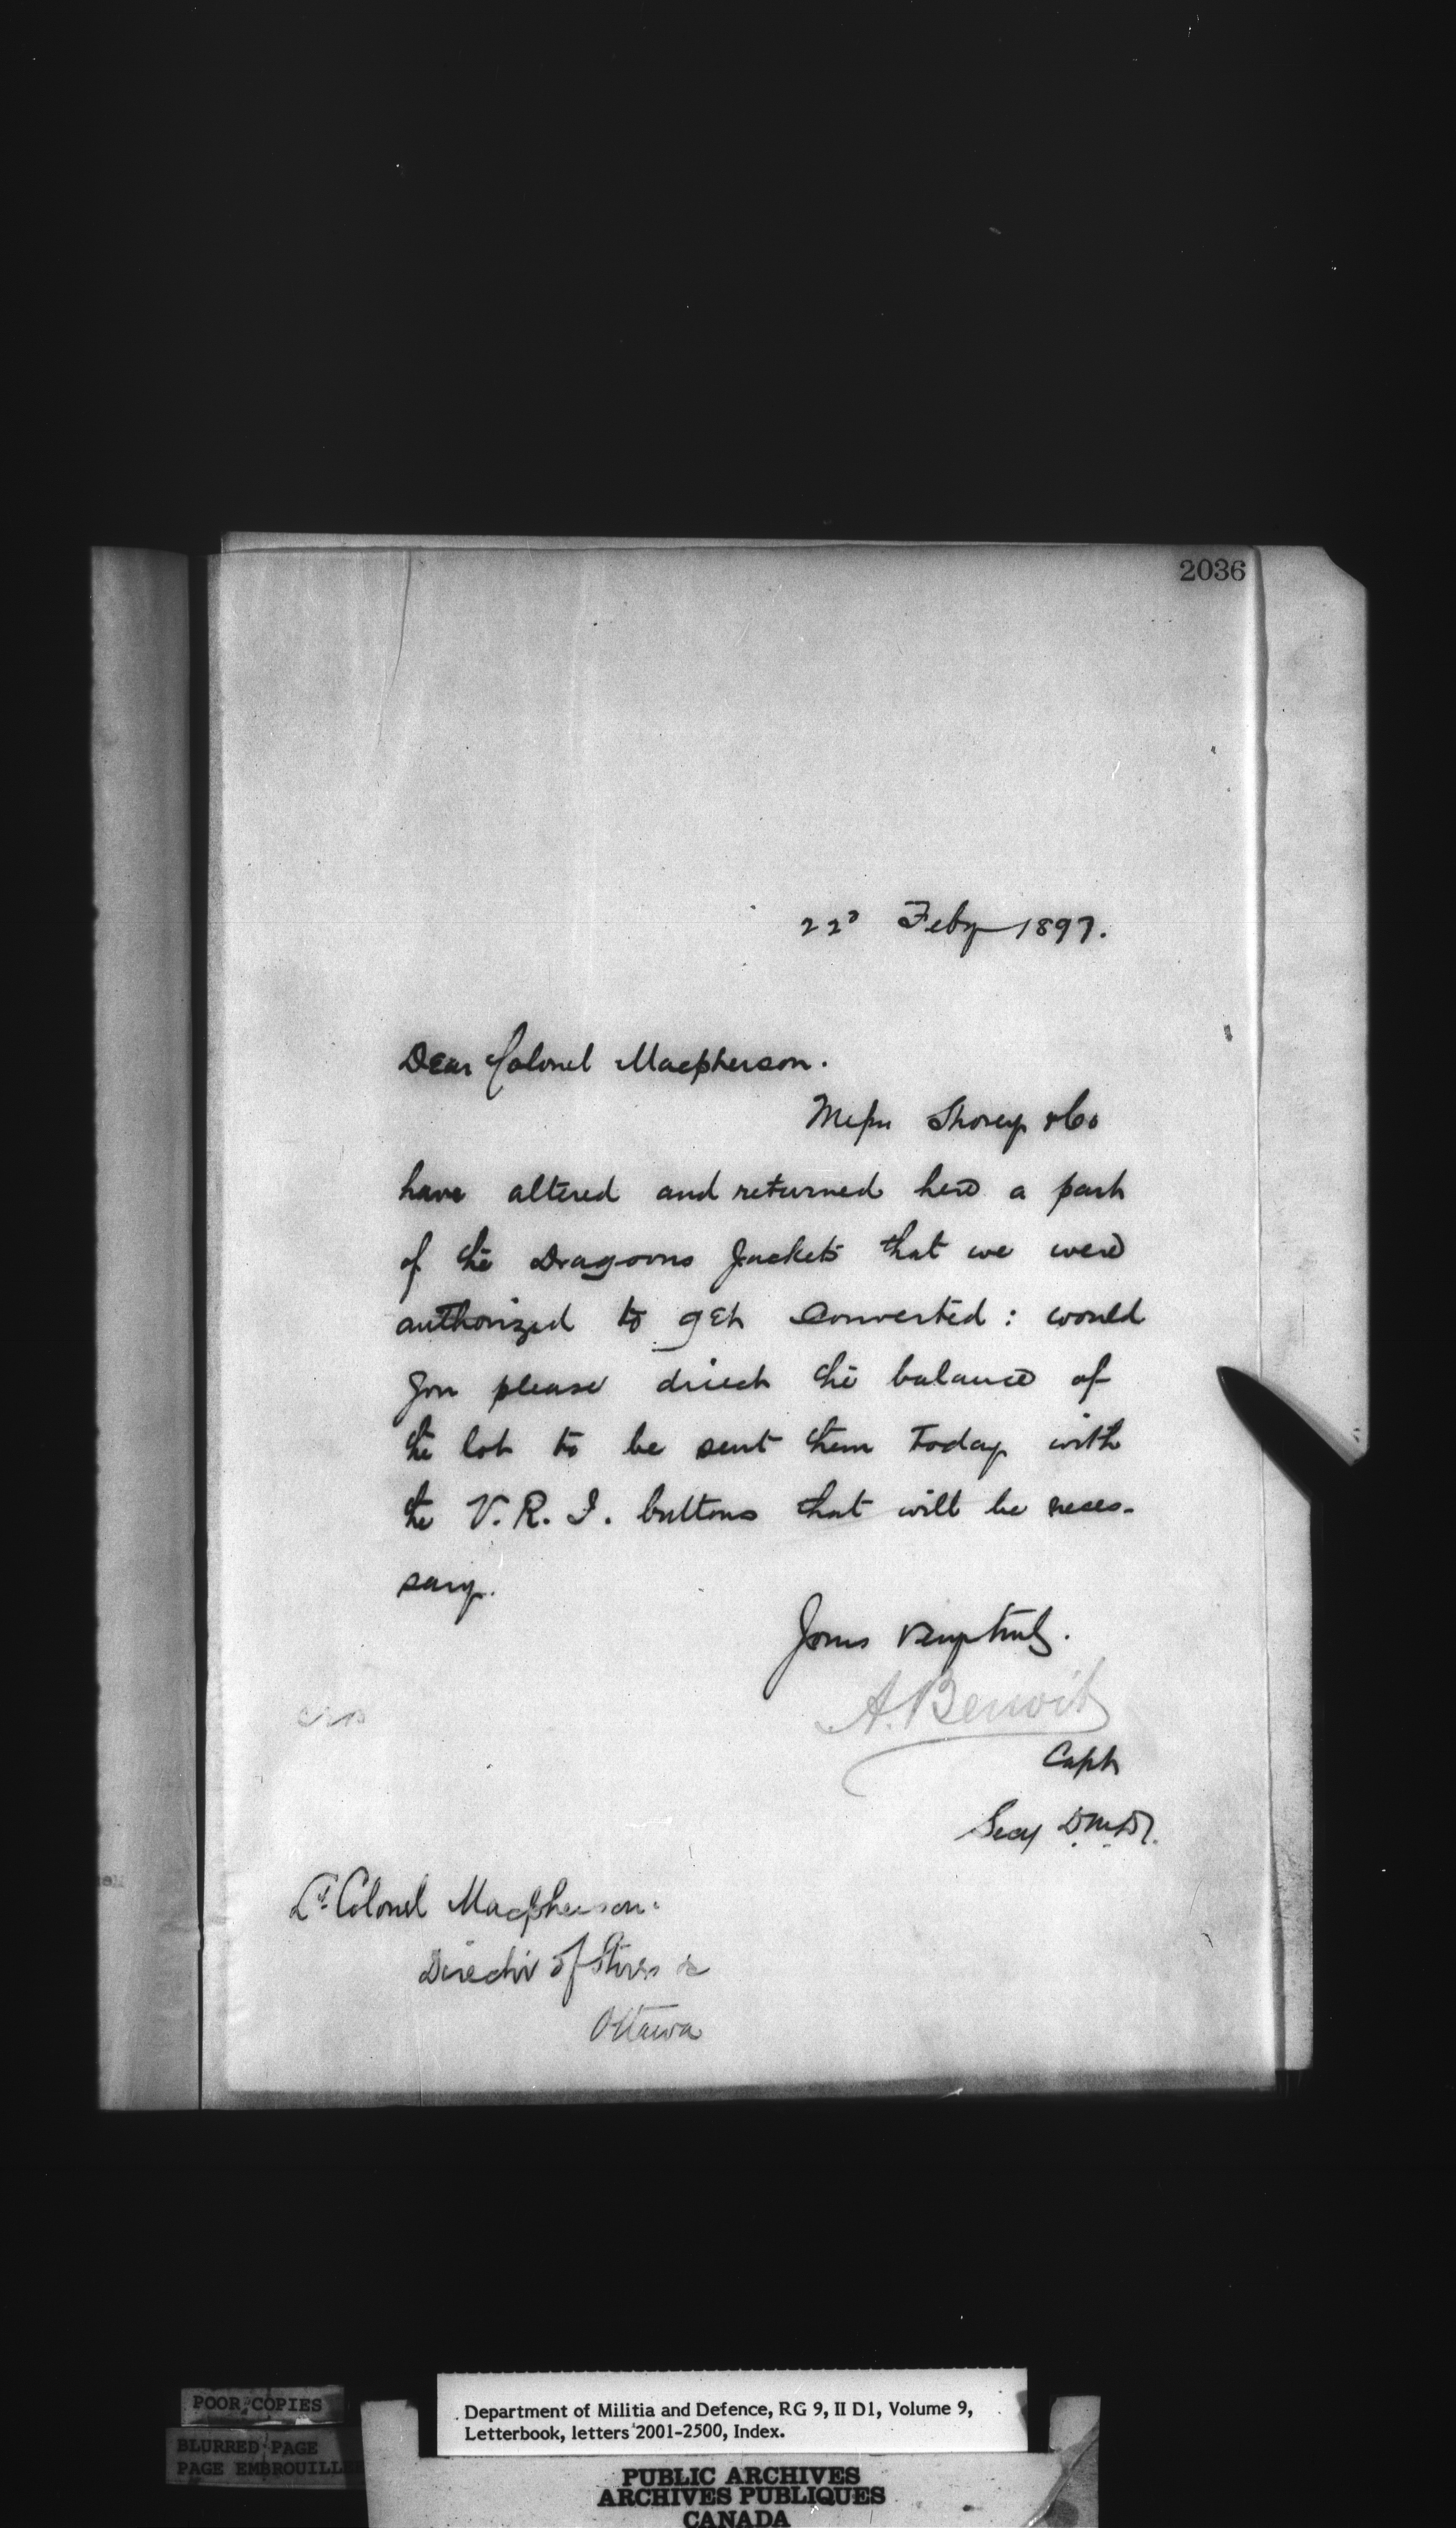 2036
22d Feby 1897.
Dear Colonel Macpherson.
Messrs Shorey & Co
have altered and returned here a part
of the Dragoons Jackets that we were
authorized to get converted : would
you please direct the balance of
the lot to be sent them today with
the V. R. I. buttons that will be neces-
sary.
Yours very truly.
A. Benoit
Capt
Secy D.M.D.
Lt. Colonel Macpherson.
Director of Stores &c
Ottawa
POOR COPIES
BLURRED PAGE
PAGE EMBROUILLE
Department of Militia and Defence, RG 9, II D1, Volume 9,
Letterbook, letters 2001-2500, Index.
PUBLIC ARCHIVES
ARCHIVES PUBLIQUES
CANADA